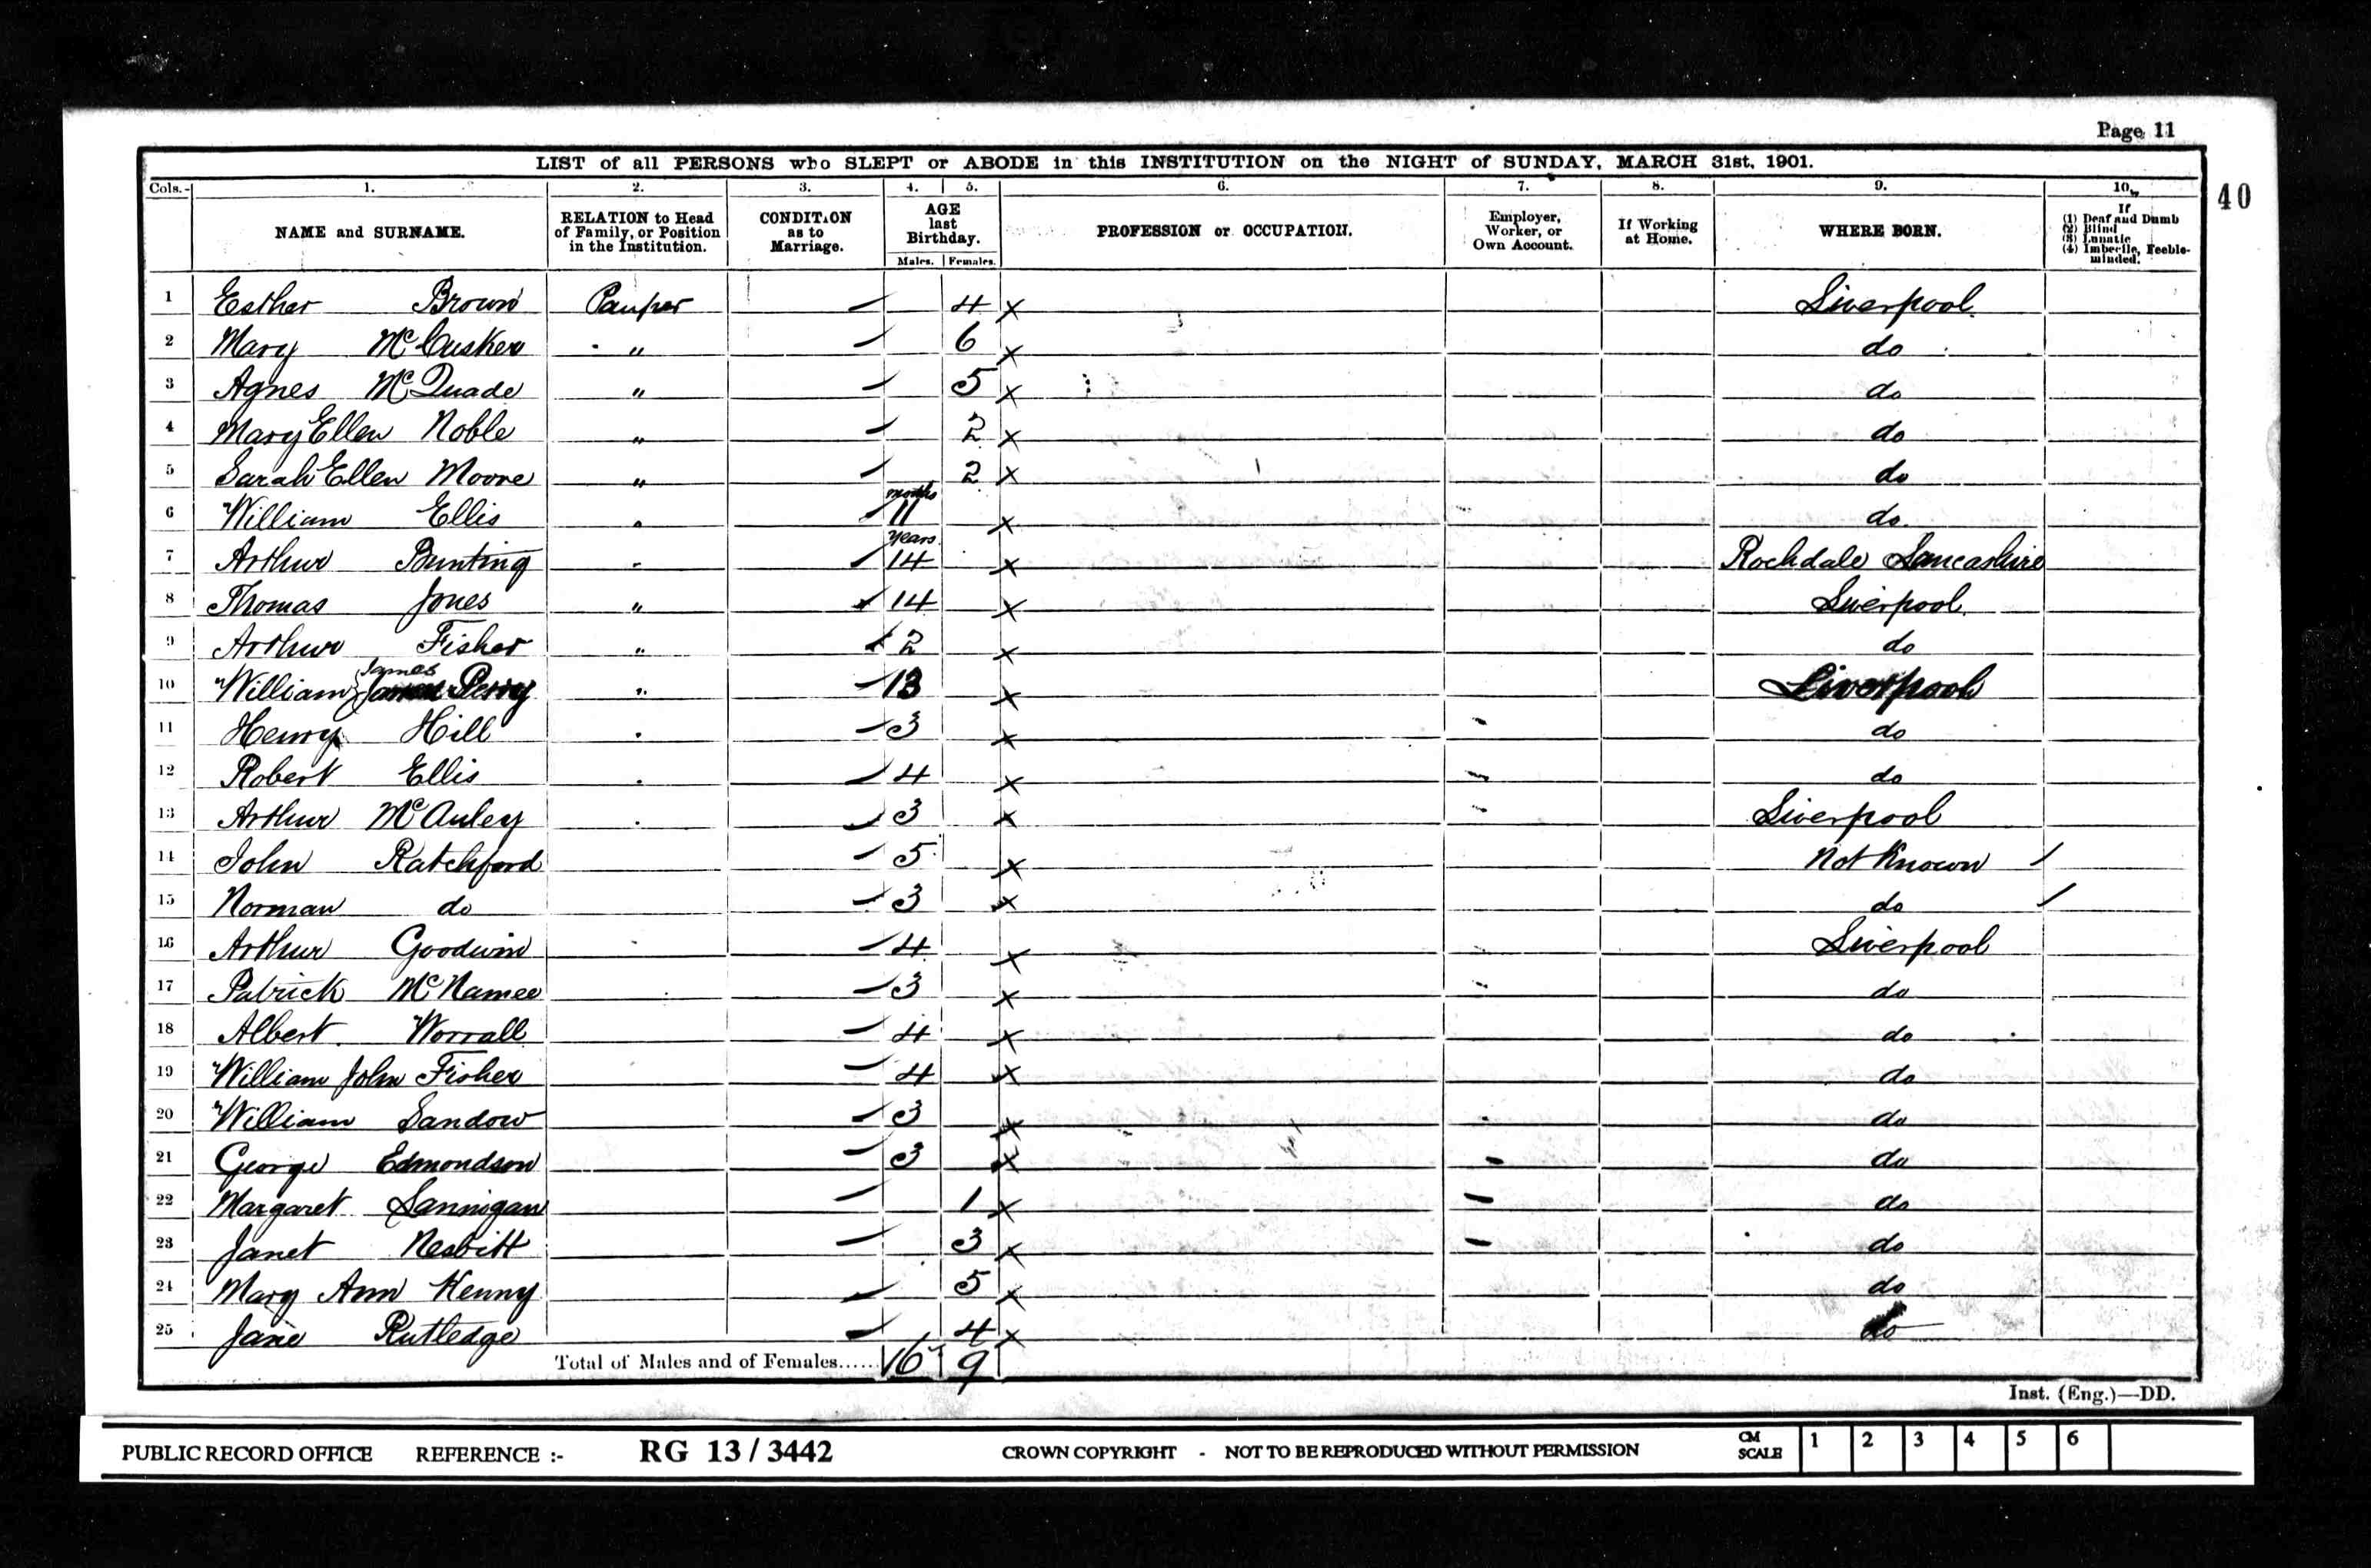 Page 11
LIST of all PERSONS who SLEPT or ABODE in this INSTITUTION on the NIGHT of SUNDAY, MARCH 31st, 1901.
Cols.- 1. 2. 3. 4. 5. 6. 7. 8. 9. 10.
40
NAME and SURNAME.
RELATION to Head
of Family, or Position
in the Institution.
CONDITION
as to
Marriage.
AGE
last
Birthday.
Males. Females.
PROFESSION or OCCUPATION.
Employer,
Worker, or
Own Account.
If Working
at Home.
WHERE BORN.
If
(1) Deaf and Dumb
(2) Blind
(3) Lunatic
(4) Imbecile, Feeble-
minded.
1 Esther Brown Pauper — 4 x Liverpool
2 Mary McCusker " — 6 x do
3 Agnes McQuade " — 5 x do
4 Mary Ellen Noble " — 2 x do
5 Sarah Ellen Moore " — 2 x do
months
6 William Ellis " — 11 x do
years
7 Arthur Bunting " — 14 x Rochdale Lancashire
8 Thomas Jones " — 14 x Liverpool
9 Arthur Fisher " — 2 x do
James
10 William Perry " — 13 x Liverpool
11 Henry Hill " — 3 x do
12 Robert Ellis " — 4 x do
13 Arthur McAuley " — 3 x Liverpool
14 John Ratchford — 5 x Not Known /
15 Norman do — 3 x do /
16 Arthur Goodwin — 4 x Liverpool
17 Patrick McNamee — 3 x do
18 Albert Worrall — 4 x do
19 William John Fisher — 4 x do
20 William Sandow — 3 x do
21 George Edmondson — 3 x do
22 Margaret Lannigan — 1 x do
23 Janet Nesbitt — 3 x do
24 Mary Ann Kenny — 5 x do
25 Jane Rutledge — 4 x do
Total of Males and of Females...... 16 9
Inst. (Eng.)—DD.
PUBLIC RECORD OFFICE REFERENCE :- RG 13 / 3442 CROWN COPYRIGHT - NOT TO BE REPRODUCED WITHOUT PERMISSION CM SCALE 1 2 3 4 5 6